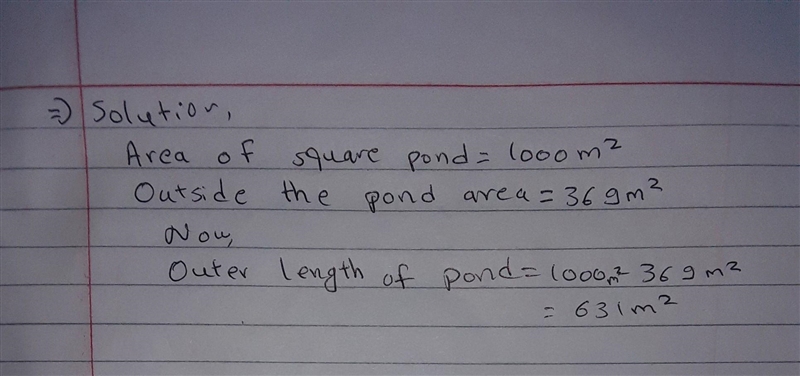 ⇒ Solution,
Area of square pond = 1000m²
Outside the pond area = 369m²
Now,
Outer length of pond = 1000m² 369m²
= 631m²